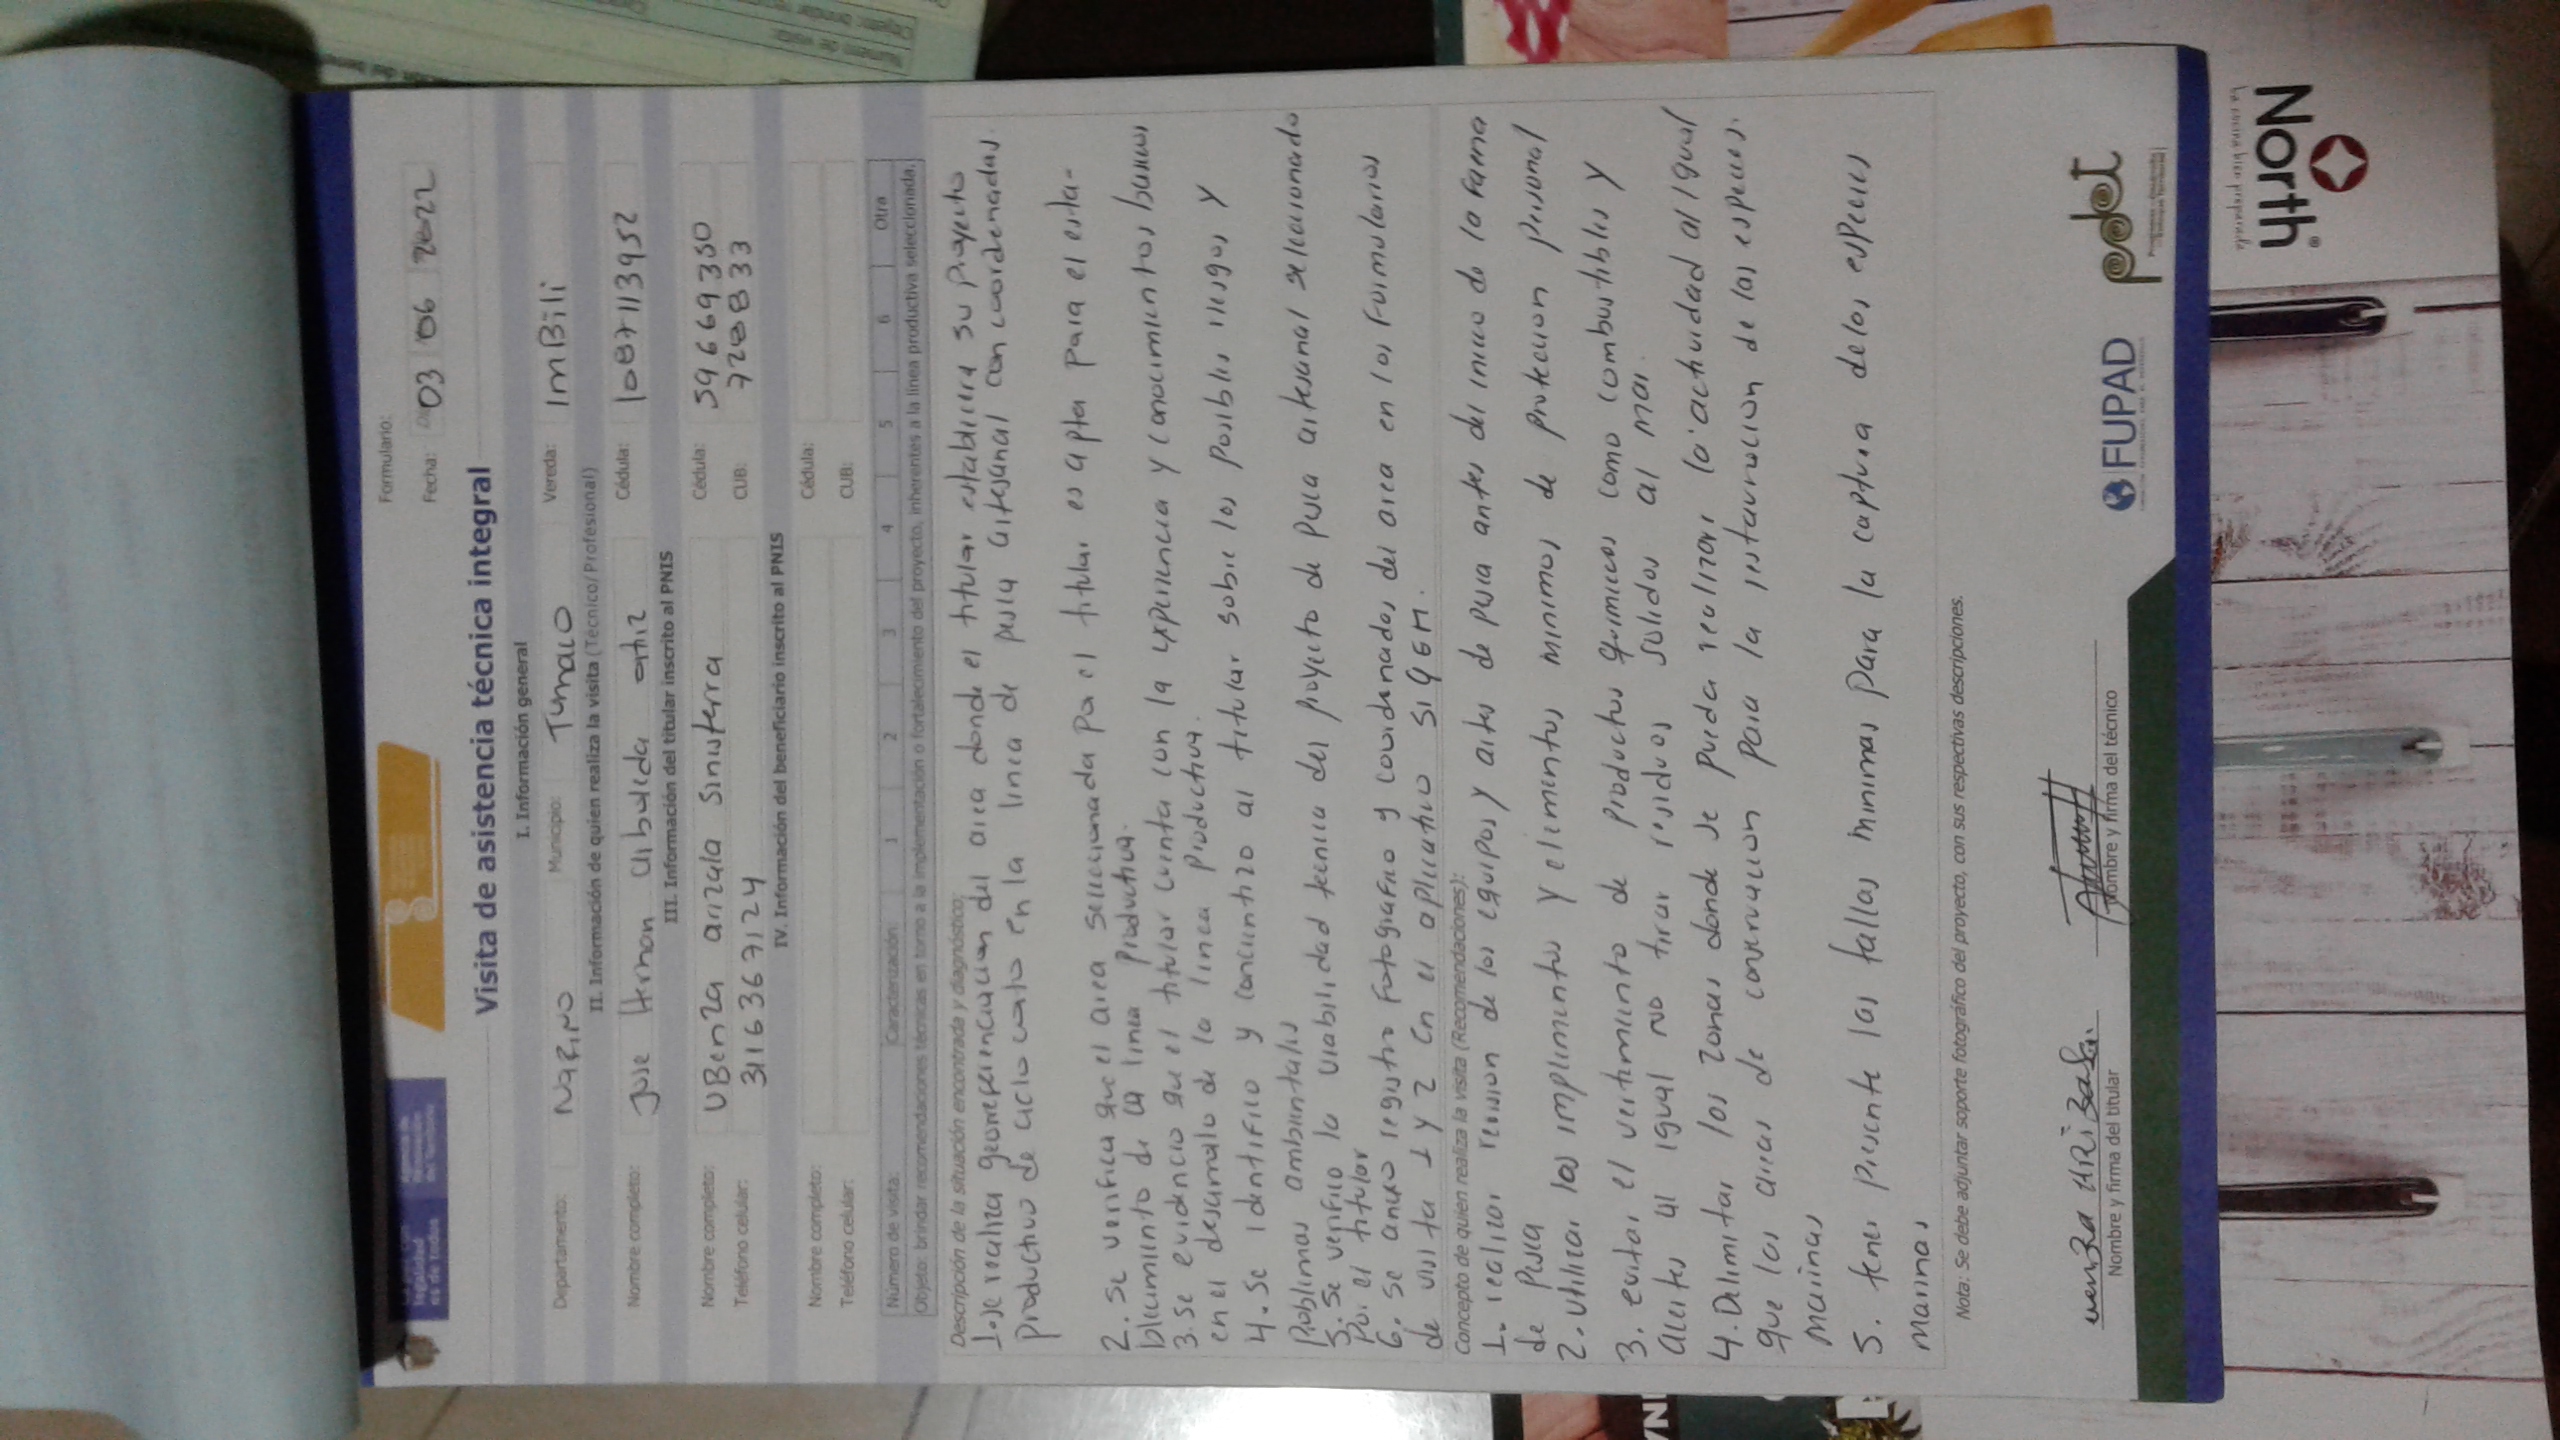 Formulario:
Fecha: 03 06 2022
Visita de asistencia técnica integral
I. Información general
Departamento: NARIÑO Municipio: Tumaco Vereda: ImBili
II. Información de quien realiza la visita (Técnico/Profesional)
Nombre completo: Jose Hernan arboleda ortiz Cédula: 1087113952
III. Información del titular inscrito al PNIS
Nombre completo: UBenza arizala sinisterra Cédula: 59669350
Teléfono celular: 3163667124 CUB: 7208833
IV. Información del beneficiario inscrito al PNIS
Nombre completo: Cédula:
Teléfono celular: CUB:
Número de visita: Caracterización 1 2 3 4 5 6 Otra
Objeto: brindar recomendaciones técnicas en torno a la implementación o fortalecimiento del proyecto, inherentes a la línea productiva seleccionada.
Descripción de la situación encontrada y diagnóstico:
1. se realiza georreferenciacion del area donde el titular establecera su proyecto
productivo de ciclo corto en la linea de pesca artesanal con coordenadas.
2. se verifica que el area seleccionada por el titular es apta para el esta-
blecimiento de la linea productiva.
3. se evidencio que el titular cuenta con la experiencia y conocimientos basicos
en el desarrollo de la linea productiva.
4. se identifico y concientizo al titular sobre los posibles riesgos y
problemas ambientales
5. se verifico la viabilidad tecnica del proyecto de pesca artesanal seleccionado
por el titular
6. se anexo registro fotografico y coordenadas del area en los formularios
de visita 1 y 2 en el aplicativo SIGEM.
Concepto de quien realiza la visita (Recomendaciones):
1. realizar revision de los equipos y artes de pesca antes del inicio de la faena
de pesca
2. utilizar los implementos y elementos minimos de proteccion personal
3. evitar el vertimiento de productos quimicos como combustibles y
aceites al igual no tirar residuos solidos al mar.
4. Delimitar las zonas donde se pueda realizar la actividad al igual
que las areas de conservacion para la restauracion de las especies
marinas
5. tener presente las tallas minimas para la captura de las especies
marinas
Nota: Se debe adjuntar soporte fotográfico del proyecto, con sus respectivas descripciones.
Nombre y firma del titular
Nombre y firma del técnico
FUPAD
pdet
North